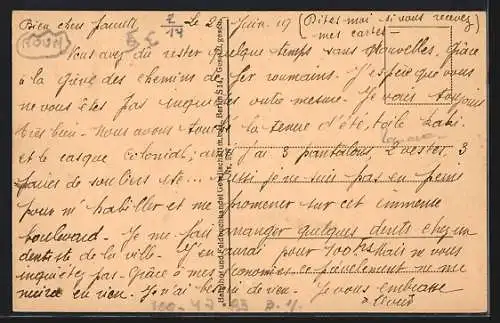 Bien chers 
Le 2 Juin 19
(Dites moi si vous recevez
mes cartes
Vous avez dû rester quelque temps sans nouvelles, grâce
à la grève des chemins de fer roumains. J'espère que vous
ne vous êtes pas inquiétés outre mesure. Je vais toujours
très bien. Nous avons touché la tenue d'été, toile kaki
et le casque colonial, aussi j'ai 3 pantalons, 2 vestes, 3
paires de souliers etc... Aussi je ne suis pas en peine
pour m'habiller et me promener sur cet immense
boulevard. Je me fais arranger quelques dents chez un
dentiste de la ville. J'en aurai pour 100 Mais ne vous
inquiétez pas. Grâce à mes économies ce 
en rien. Je n'ai besoin de rien. Je vous embrasse